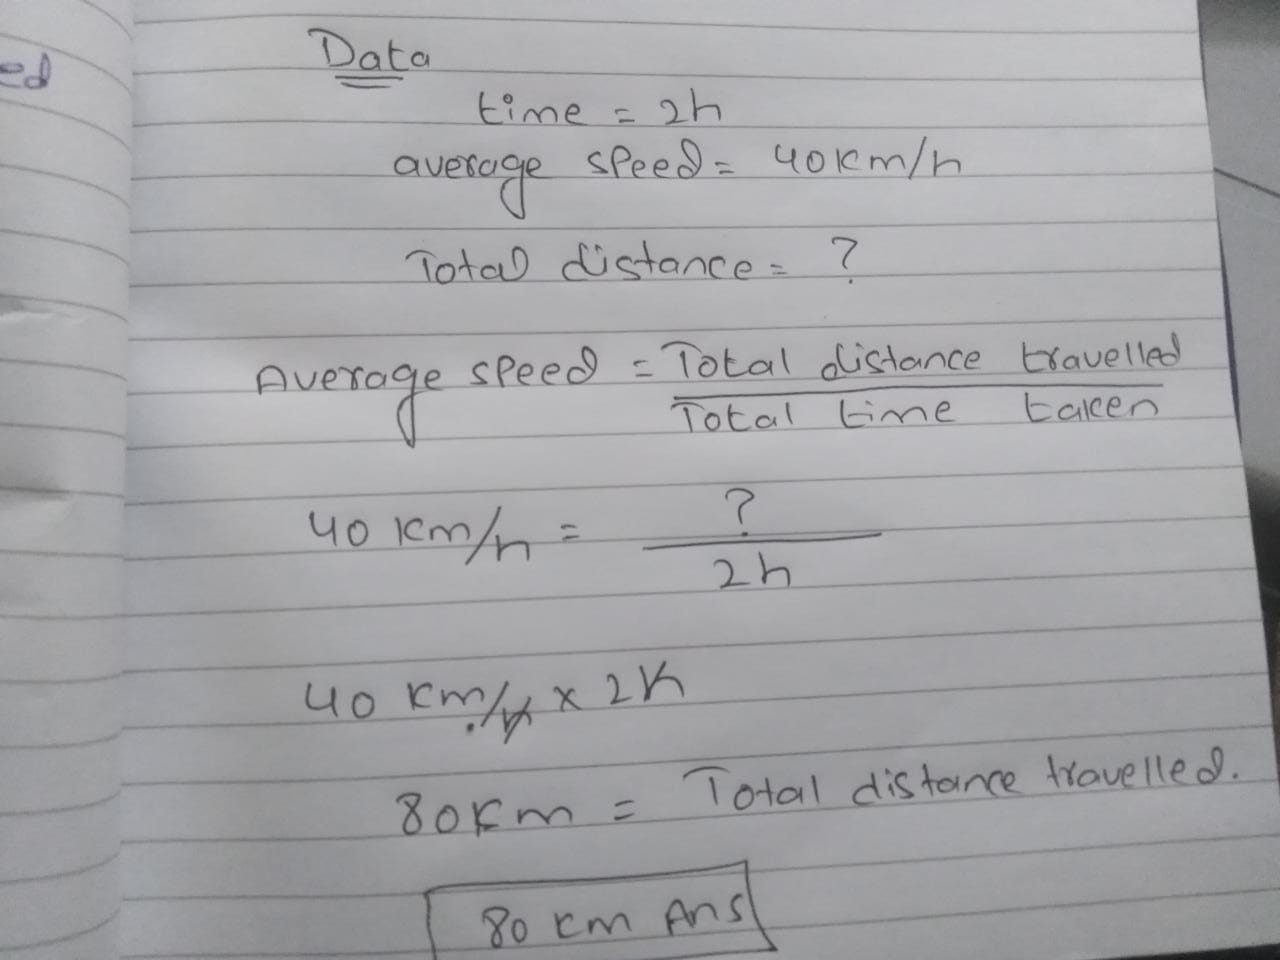 ed
Data
time = 2h
average speed = 40km/h
Total distance = ?
Average speed = Total distance travelled
Total time taken
40 km/h = ?
2h
40 km/h × 2h
80km = Total distance travelled.
80 km Ans